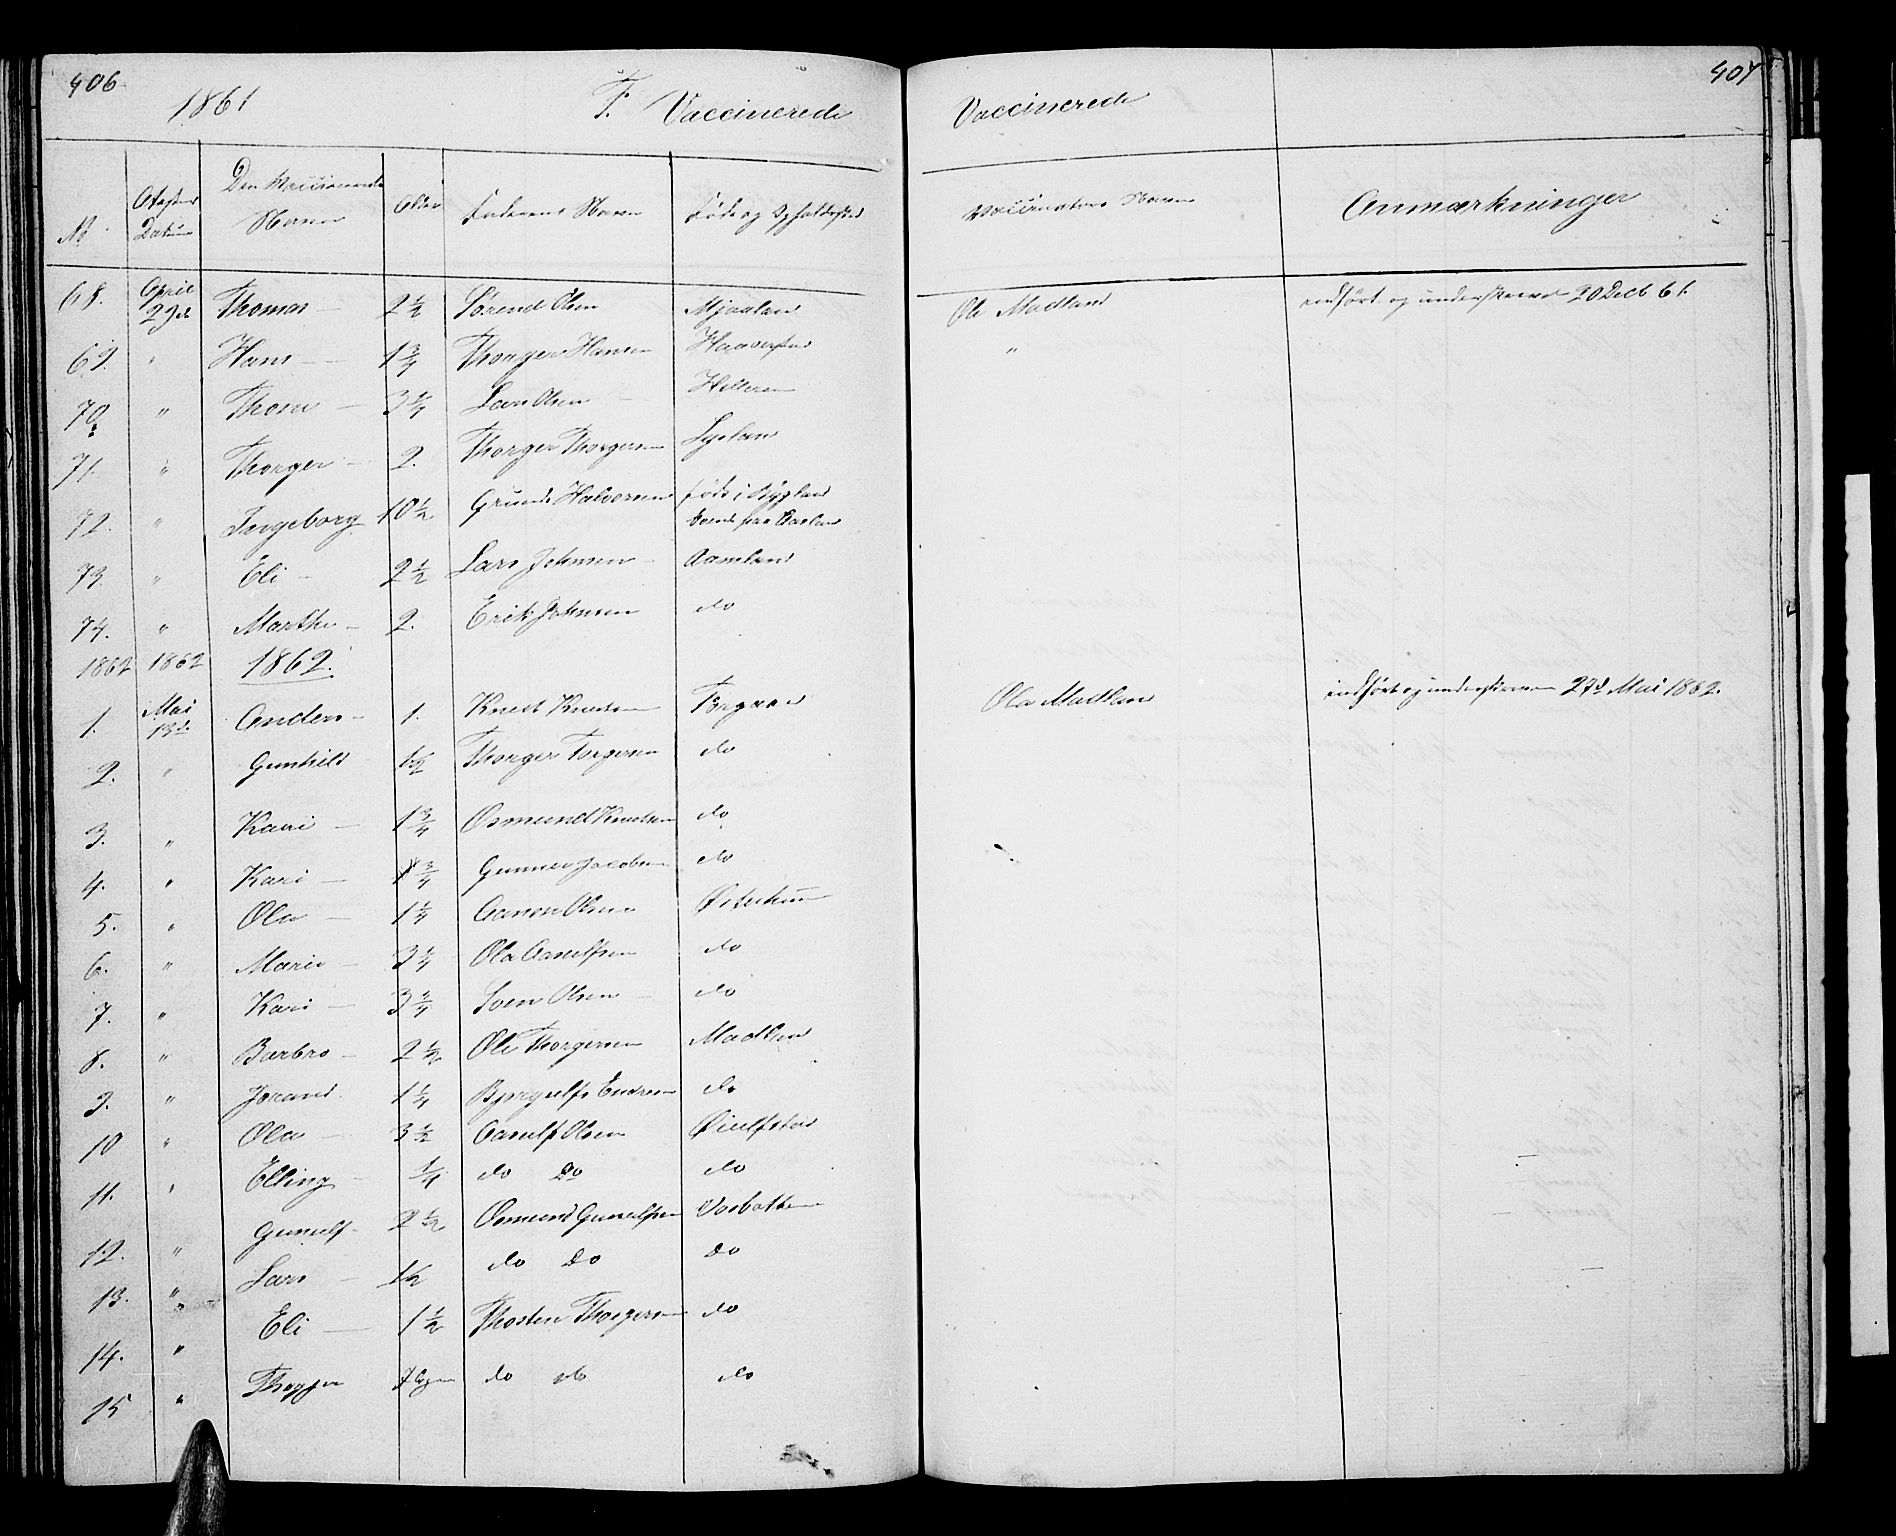 406
1861 F. Vaccinerede
No Attestens Datum Den Vaccineredes Navn Alder Faderens Navn Føde og Opholdssted
68. April 29de Thomas 2 1/2 Sørend Olsen Mjaaland
69. " Hans 1 3/4 Thorger Hansen
70. " Thone 3 1/4 Lars Olsen Helleren
71. " Thorger 2. Thorger Thorgersen
72. " Ingeborg 10 1/2 Halvorsen født i Bygland
73. " Eli 2 1/2 Lars Johnsen Aamland
74. " Marthe 2. Erik Johnsen do
1862 1862 1862.
1. Mai 13d. Anders 1. Knud Knudsen
2. " Gunhild 1 1/2 Thorger Torgersen do
3. " Kari 1 3/4 Osmund Knudsen do
4. " Kari 1 3/4 Gunner Jacobsen do
5. " Ola 1 1/4 Olsen
6. " Marie 3 1/4 Ola Aanulfsen do
7. " Kari 3 3/4 Sven Olsen do
8. " Barbro 2 1/2 Ole Thorgersen Madland
9. " Jorand 1 1/4 Bjorgulf Endresen do
10 " Ola 3 1/2 Aanulf Olsen Øiulfstad
11. " Elling 1/4 do Do do
12. " Gunulf 2 1/2 Osmund Gunulfsen
13. " Lars 1/2 do Do Do
14. " Eli 1 1/2 Thosten Thorgersen do
15 " do do do
407
Vaccinerede
Vaccinators Navn Anmærkninger
Ole Madland indført og underskrevet 20 Decb 61.
"
Ola Madland indført og underskrevet 27d Mai 1862.